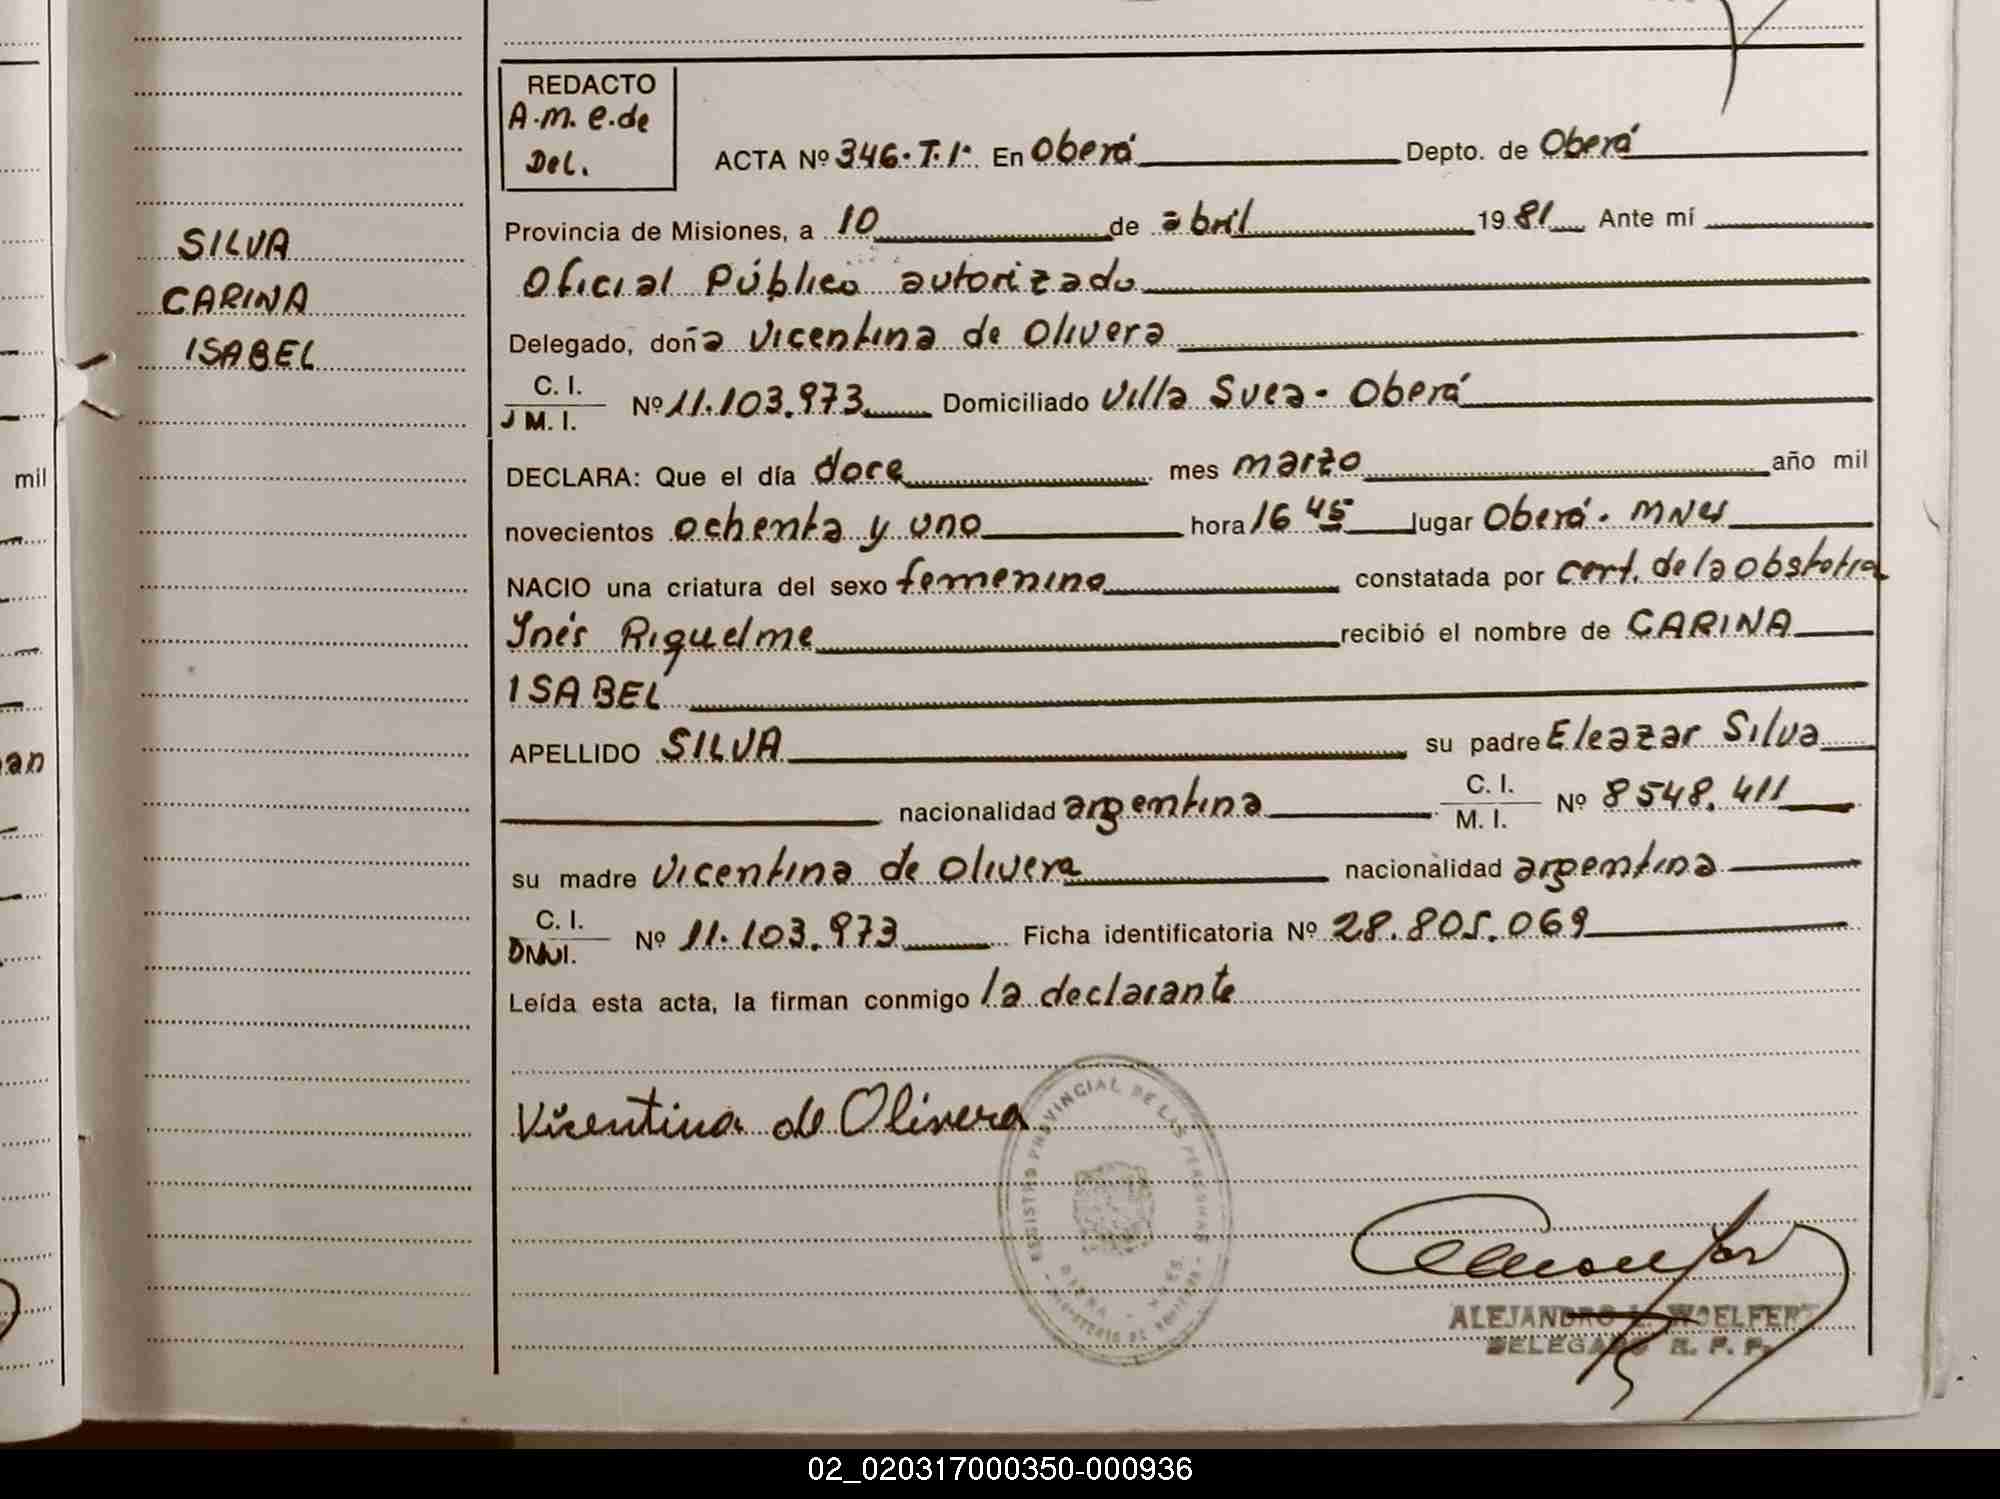 REDACTO
A.m. e.de
Del.
ACTA Nº 346. T. 1º. En Oberá Depto. de Oberá
Provincia de Misiones, a 10 de abril 1981 Ante mí
SILVA
Oficial Público autorizado
CARINA
Delegado, doña Vicentina de Olivera
ISABEL
C. I.
M. I. Nº 11.103.973 Domiciliado Villa Svea - Oberá
DECLARA: Que el día doce mes marzo año mil
mil
novecientos ochenta y uno hora 16 45 lugar Oberá. MNES
NACIO una criatura del sexo femenino constatada por cert. de la obstetra
Inés Riquelme recibió el nombre de CARINA
ISABEL
APELLIDO SILVA su padre Eleazar Silva
an
nacionalidad argentina C. I.
M. I. Nº 8548.411
su madre Vicentina de Olivera nacionalidad argentina
C. I.
DNI. Nº 11.103.973 Ficha identificatoria Nº 28.805.069
Leída esta acta, la firman conmigo la declarante
Vicentina de Olivera
REGISTRO PROVINCIAL DE LAS PERSONAS
OBERA - MNES.
ALEJANDRO L. WOELFERT
DELEGADO R. P. P.
02_020317000350-000936